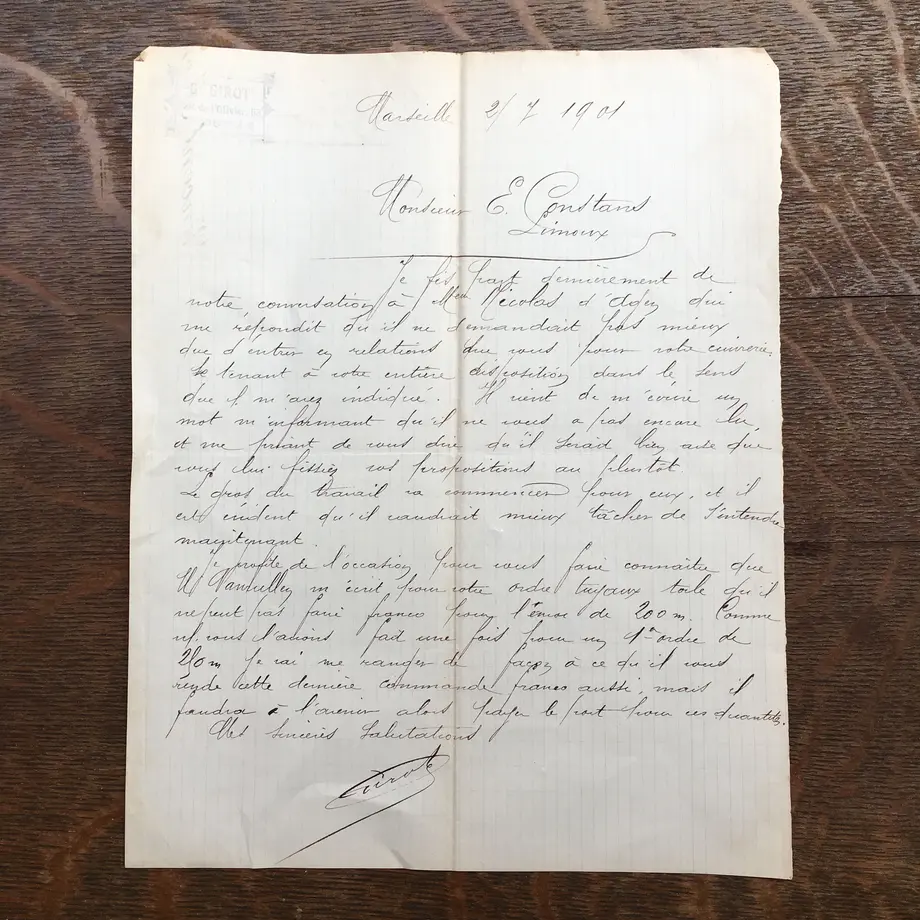 G. GIROT
Marseille 2/7 1901
Monsieur E. Constans
Limoux
Je fis part dernièrement de
notre conversation à Mr Nicolas d'Agde qui
me répondit qu'il ne demandait pas mieux
que d'entrer en relations que vous pour votre
se tenant à votre entière disposition dans le sens
que il m'avez indiqué. Il vient de m'écrire un
mot m'informant qu'il ne vous a pas encore lu
et me priant de vous dire qu'il serait bien aise que
vous lui fissiez vos propositions au plustôt.
Le gros du travail va commencer pour eux, et il
est évident qu'il vaudrait mieux tâcher de s'entendre
maintenant.
Je profite de l'occasion pour vous faire connaître que
M m'écrit pour votre ordre tuyaux toile qu'il
ne peut pas faire franco pour l'envoi de 200 m. Comme
n/ vous l'avions fait une fois pour un 1er ordre de
250 m je vai me ranger de façon à ce qu'il vous
rende cette dernière commande franco aussi, mais il
faudra à l'avenir alors payer le port pour ces quantités.
Mes sincères salutations
Girot